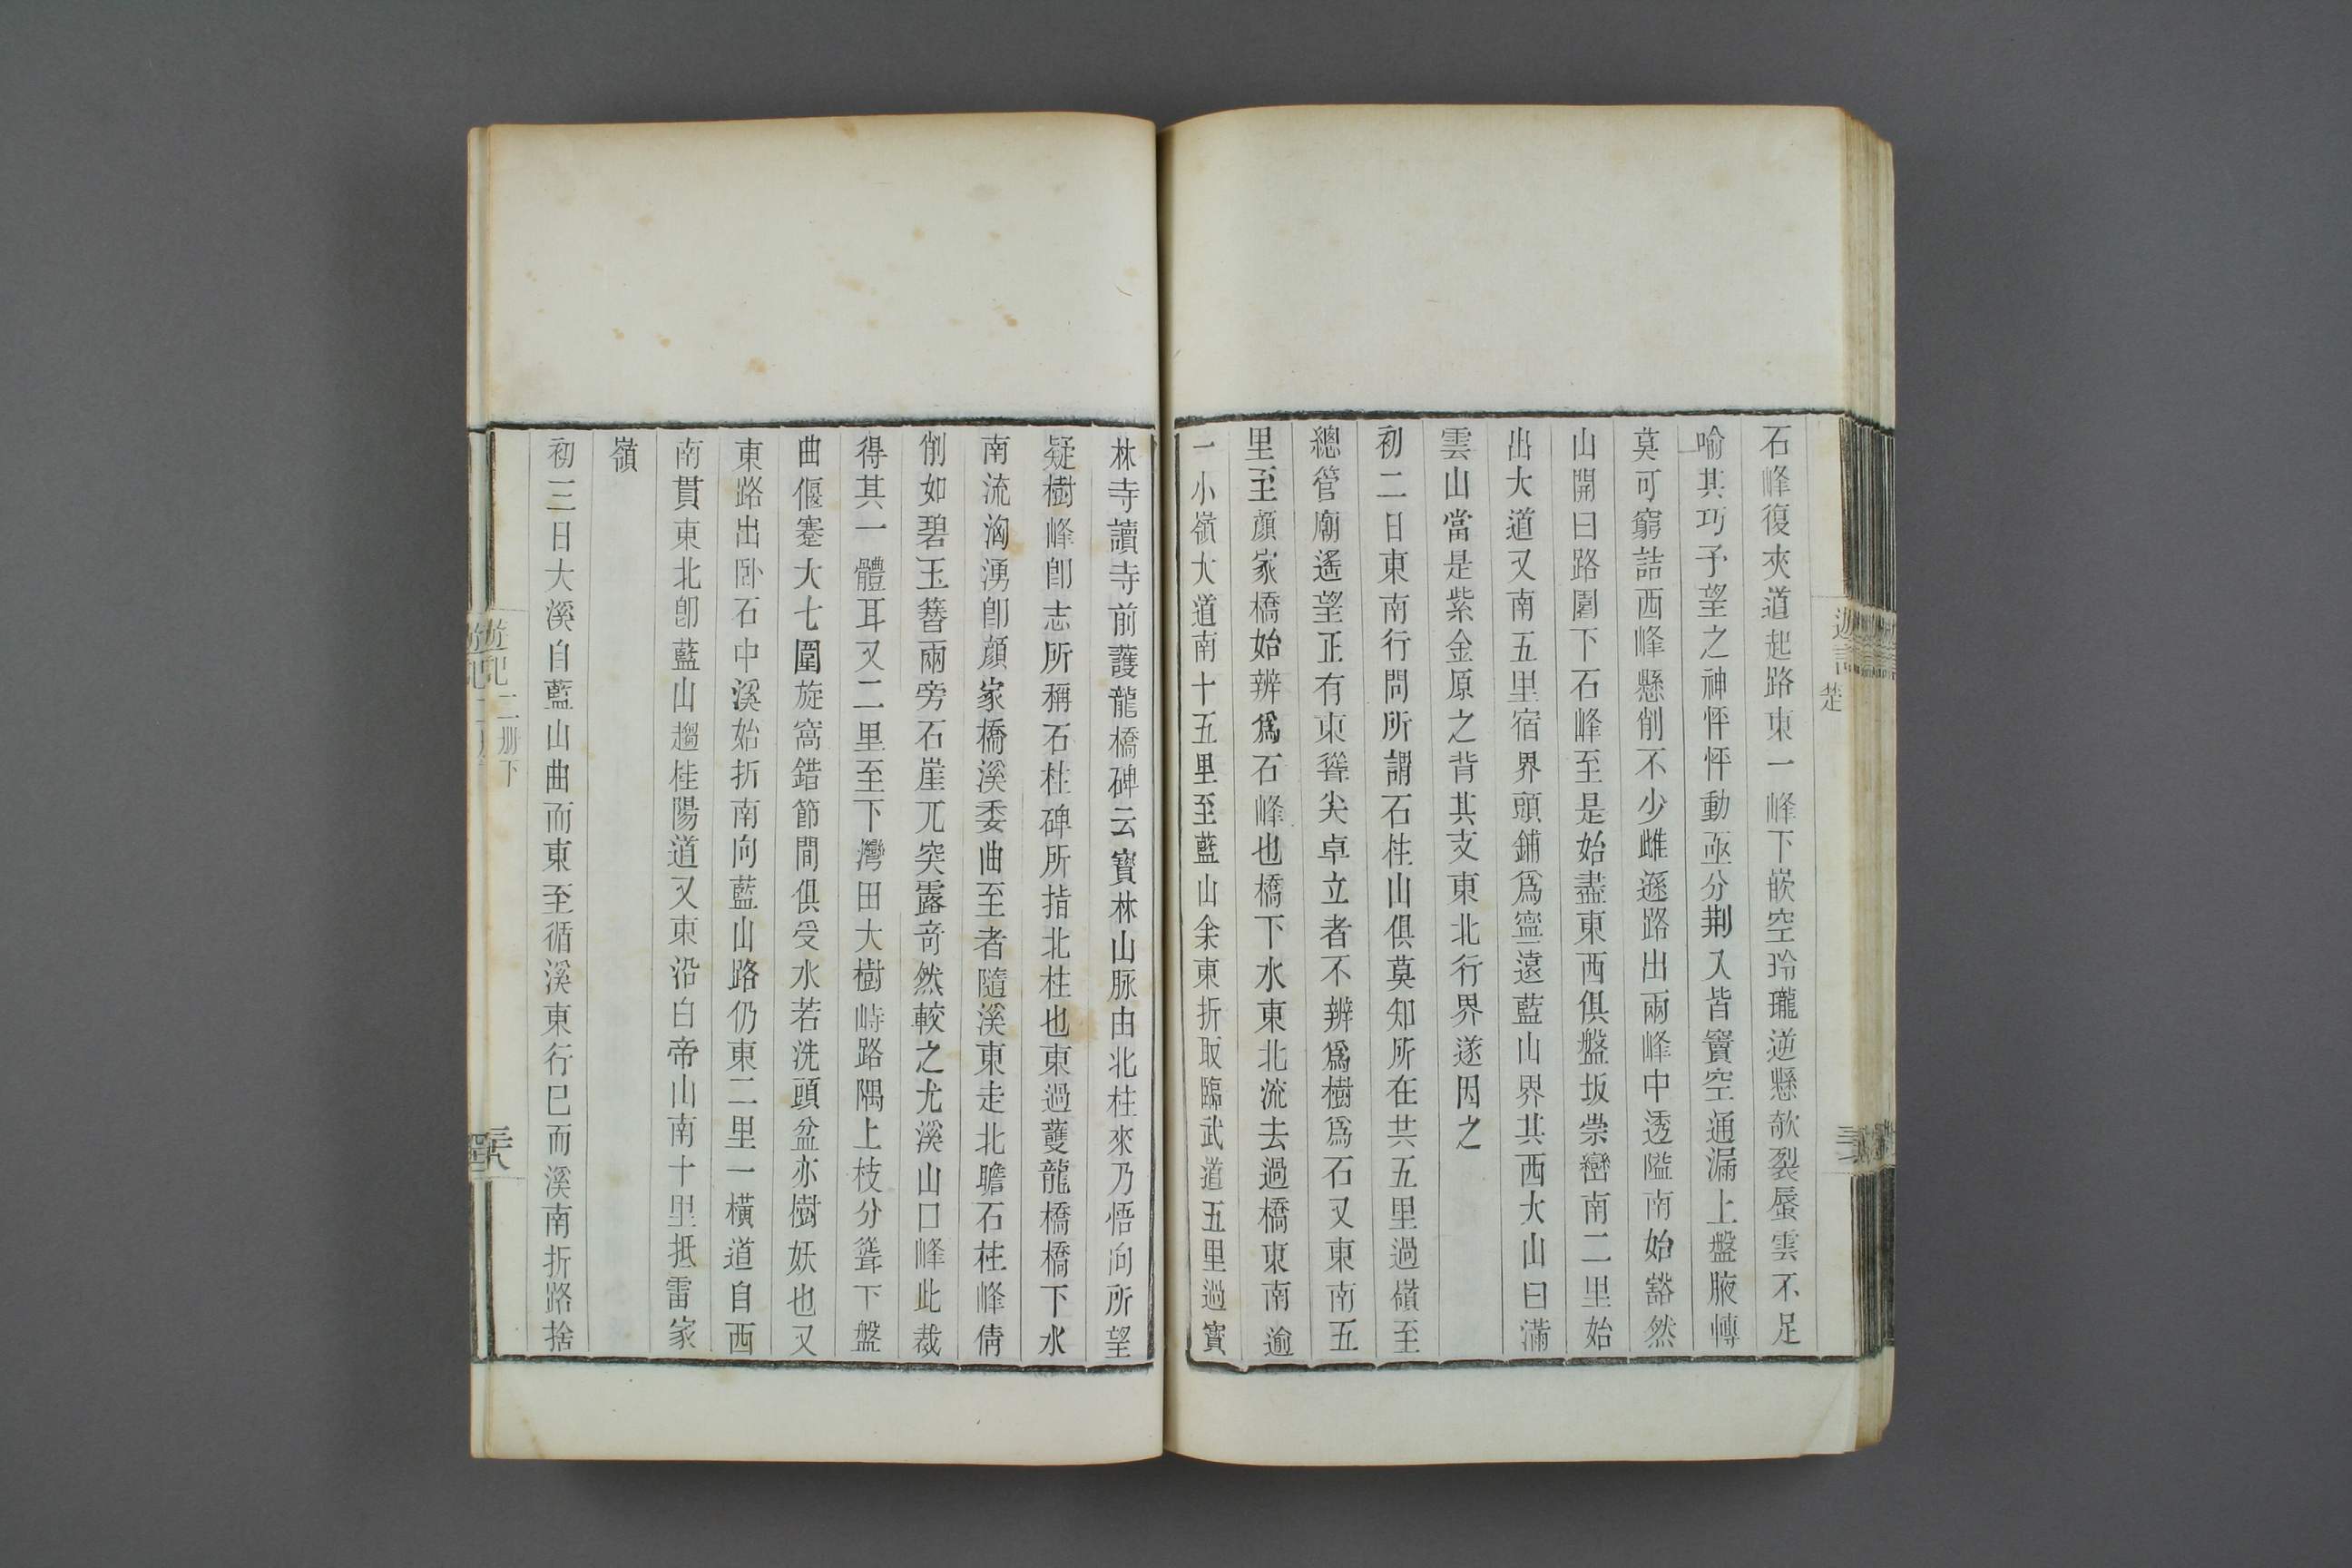 石峰復夾道起路東一峰下嵌空玲瓏逆懸欹裂蜃雲不足
喻其巧予望之神怦怦動亟分荆入皆竇空通漏上盤腋轉
莫可窮詰西峰懸削不少雌遜路出兩峰中透隘南始豁然
山開曰路闓下石峰至是始盡東西俱盤坂崇巒南二里始
出大道又南五里宿界頭鋪爲寧遠藍山界其西大山曰滿
雲山當是紫金原之背其支東北行界遂因之
初二日東南行問所謂石柱山俱莫知所在共五里過嶺至
總管廟遙望正有東聳尖卓立者不辨爲樹爲石又東南五
里至顔家橋始辨爲石峰也橋下水東北流去過橋東南逾
一小嶺大道南十五里至藍山余東折取臨武道五里過寶
林寺讀寺前護龍橋碑云寶林山脉由北柱來乃悟向所望
疑樹峰卽志所稱石柱碑所指北柱也東過護龍橋橋下水
南流洶湧卽顔家橋溪委曲至者隨溪東走北瞻石柱峰倩
削如碧玉簪兩旁石崖兀突露奇然較之尤溪山口峰此裁
得其一體耳又二里至下灣田大樹峙路隅上枝分聳下盤
曲偃蹇大七圍旋窩錯節間俱受水若洗頭盆亦樹妖也又
東路出卧石中溪始折南向藍山路仍東二里一橫道自西
南貫東北卽藍山趨桂陽道又東沿白帝山南十里抵雷家
嶺
初三日大溪自藍山曲而東至循溪東行巳而溪南折路捨
遊記二册下
三八